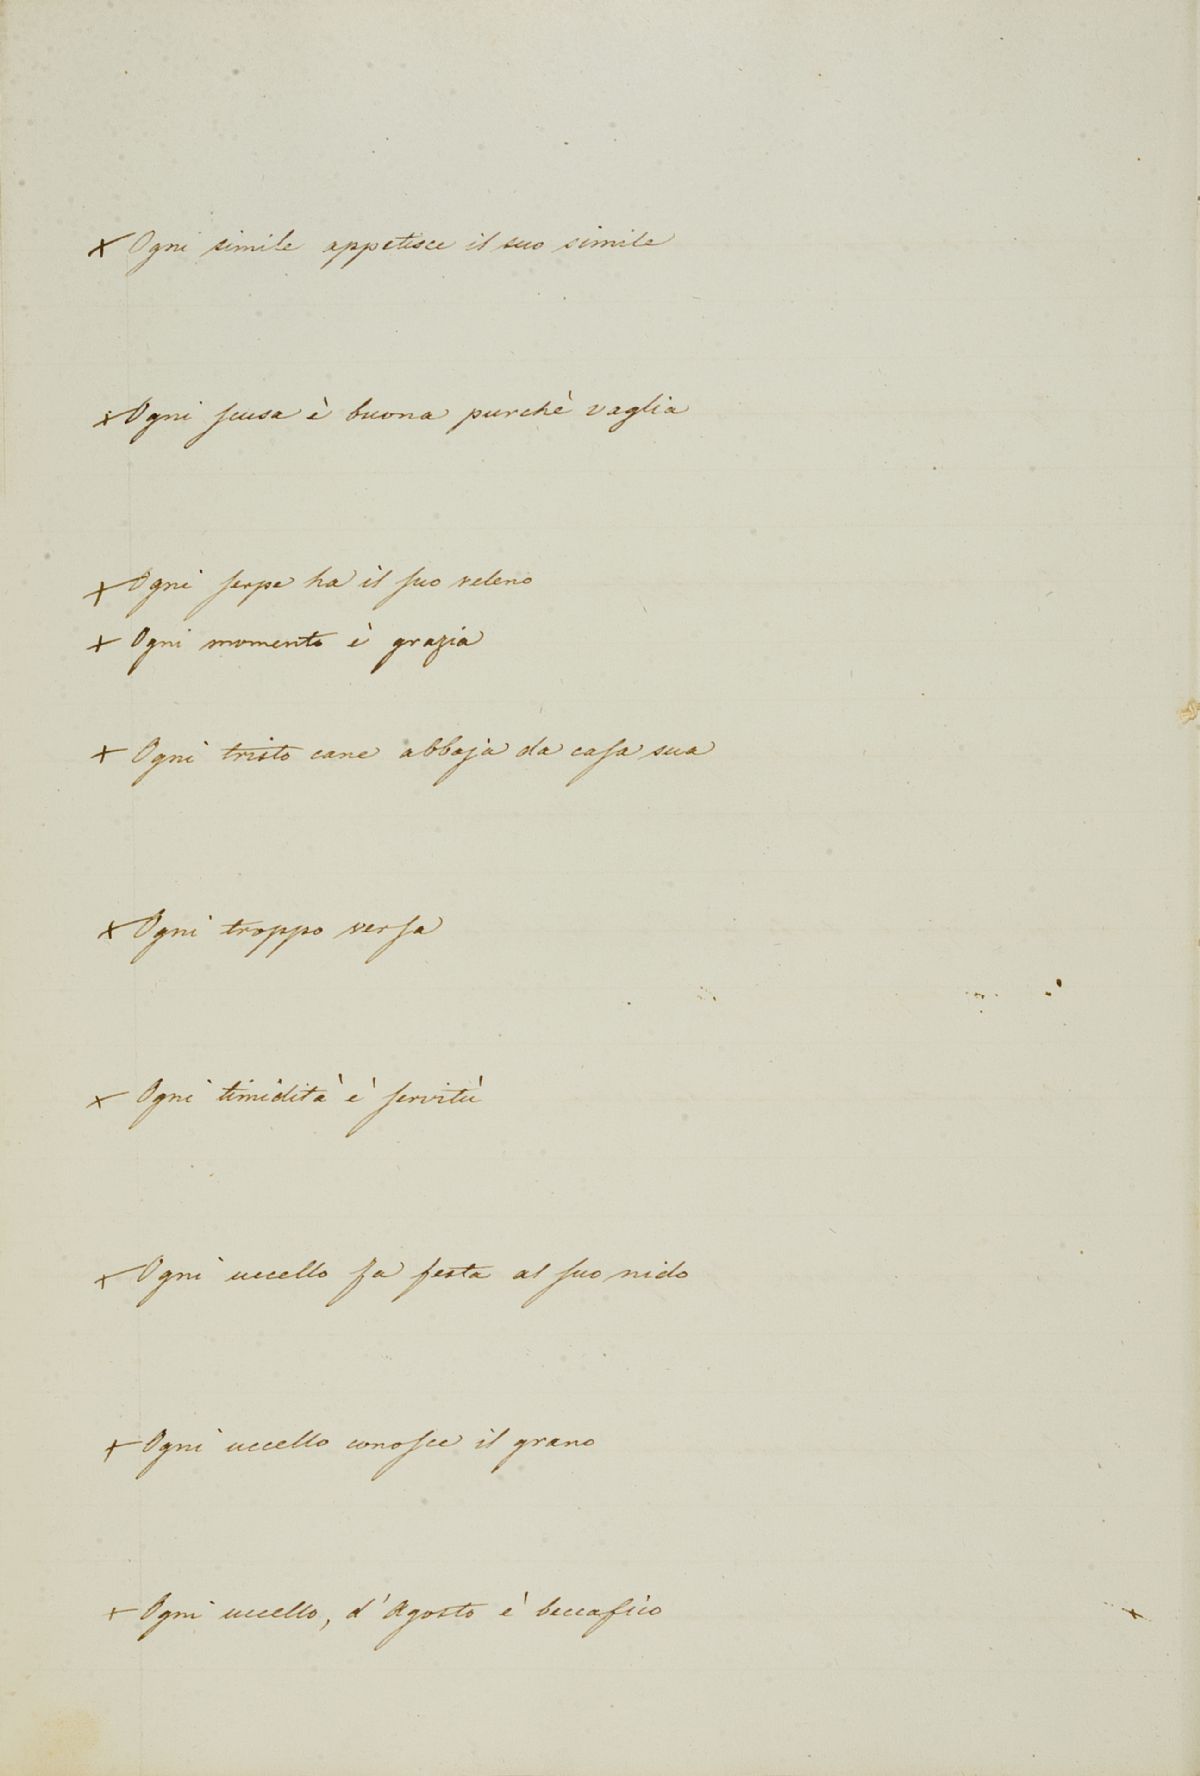 × Ogni simile appetisce il suo simile
× Ogni scusa è buona purchè vaglia
× Ogni serpe ha il suo veleno
× Ogni momento è grazia
× Ogni tristo cane abbaja da casa sua
× Ogni troppo versa
× Ogni timidità è servitù
× Ogni uccello fa festa al suo nido
× Ogni uccello conosce il grano
× Ogni uccello, d'Agosto è beccafico